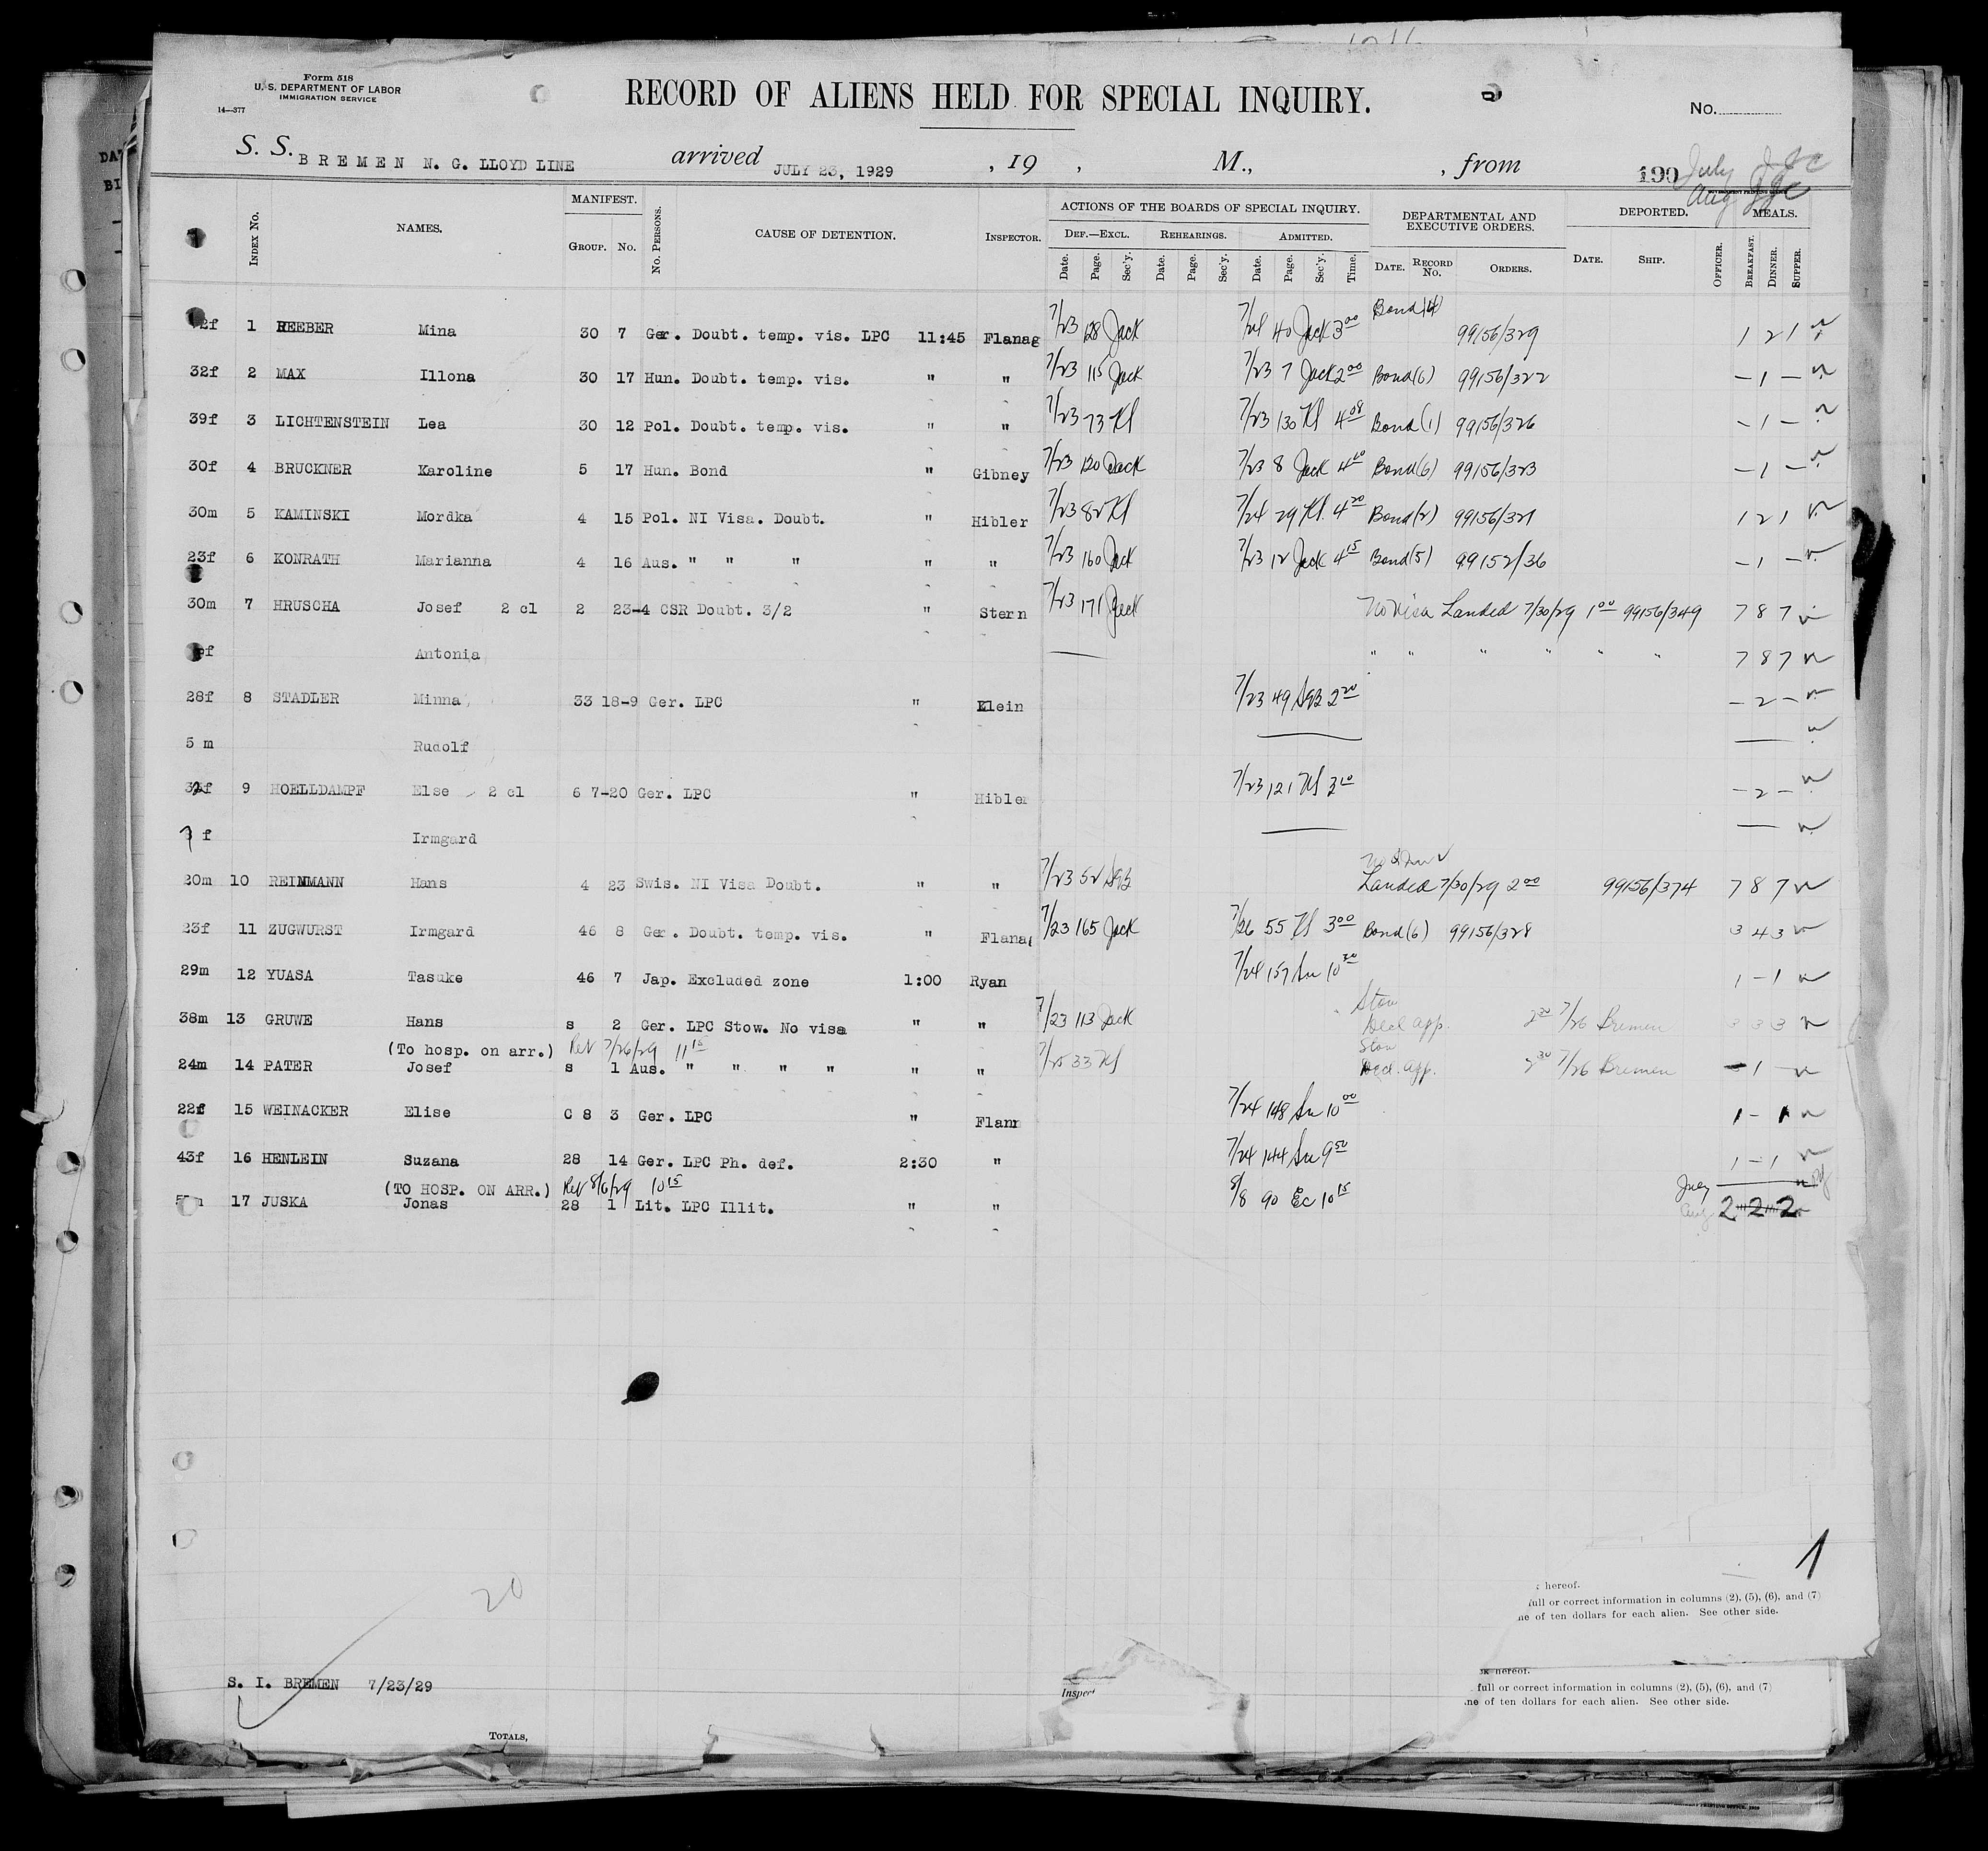 Form 518
U. S. DEPARTMENT OF LABOR
IMMIGRATION SERVICE
14—377
RECORD OF ALIENS HELD FOR SPECIAL INQUIRY.
No.
S. S. BREMEN N. G. LLOYD LINE arrived JULY 23, 1929 , 19 , M., , from 190
July
Aug
INDEX NO. NAMES. MANIFEST. GROUP. NO. NO. PERSONS. CAUSE OF DETENTION. INSPECTOR. ACTIONS OF THE BOARDS OF SPECIAL INQUIRY. DEPARTMENTAL AND EXECUTIVE ORDERS. DEPORTED. MEALS.
DEF.—EXCL. REHEARINGS. ADMITTED.
Date. Page. Sec'y. Date. Page. Sec'y. Date. Page. Sec'y. Time. DATE. RECORD NO. ORDERS. DATE. SHIP. OFFICER. BREAKFAST. DINNER. SUPPER.
2f 1 REEBER Mina 30 7 Ger. Doubt. temp. vis. LPC 11:45 Flanag 7/23 128 Jack 7/24 40 Jack 3 00 Bond (4) 99156/329 1 2 1
32f 2 MAX Illona 30 17 Hun. Doubt. temp. vis. " " 7/23 115 Jack 7/23 7 Jack 2 00 Bond (6) 99156/322 – 1 –
39f 3 LICHTENSTEIN Lea 30 12 Pol. Doubt. temp. vis. " " 7/23 73 Kl 7/23 130 Kl 4 08 Bond (1) 99156/326 – 1 –
30f 4 BRUCKNER Karoline 5 17 Hun. Bond " Gibney 7/23 120 Jack 7/23 8 Jack 4 00 Bond (6) 99156/323 – 1 –
30m 5 KAMINSKI Mordka 4 15 Pol. NI Visa. Doubt. " Hibler 7/23 82 Kl 7/24 29 Kl. 4 20 Bond (2) 99156/321 1 2 1
23f 6 KONRATH Marianna 4 16 Aus. " " " " " 7/23 160 Jack 7/23 12 Jack 4 15 Bond (5) 99152/36 – 1 –
30m 7 HRUSCHA Josef 2 cl 2 23-4 CSR Doubt. 3/2 " Stern 7/23 171 Jack No Visa Landed 7/30/29 1 00 99156/349 7 8 7
f Antonia — " " " " " " 7 8 7
28f 8 STADLER Minna 33 18-9 Ger. LPC " Klein 7/23 49 2 20 – 2 –
5 m Rudolf
f 9 HOELLDAMPF Else 2 cl 6 7-20 Ger. LPC " Hibler 7/23 121 Kl 3 10 – 2 –
f Irmgard
20m 10 REINMANN Hans 4 23 Swis. NI Visa Doubt. " " 7/23 52 Landed 7/30/29 2 00 99156/374 7 8 7
23f 11 ZUGWURST Irmgard 46 8 Ger. Doubt. temp. vis. " Flanag 7/23 165 Jack 7/26 55 Kl 3 00 Bond (6) 99156/328 3 4 3
29m 12 YUASA Tasuke 46 7 Jap. Excluded zone 1:00 Ryan 7/24 157 10 20 1 – 1
38m 13 GRUWE Hans s 2 Ger. LPC Stow. No visa " " 7/23 113 Jack Stow Decl app. 2 30 7/26 Bremen 3 3 3
(To hosp. on arr.) Ret 7/26/29 11 15
24m 14 PATER Josef s 1 Aus. " " " " " " 7/25 33 Kl Stow Decl. app. 2 30 7/26 Bremen – 1 –
22f 15 WEINACKER Elise C 8 3 Ger. LPC " Flann 7/24 148 10 00 1 – 1
43f 16 HENLEIN Suzana 28 14 Ger. LPC Ph. def. 2:30 " 7/24 144 9 50 1 – 1
(TO HOSP. ON ARR.) Ret 8/6/29 10 15 July
17 JUSKA Jonas 28 1 Lit. LPC Illit. " " 8/8 90 Ec 10 15 Aug 2 2 2
1
20
hereof.
full or correct information in columns (2), (5), (6), and (7)
ne of ten dollars for each alien. See other side.
S. I. BREMEN 7/23/29
hereof.
full or correct information in columns (2), (5), (6), and (7)
ne of ten dollars for each alien. See other side.
Inspect
TOTALS,